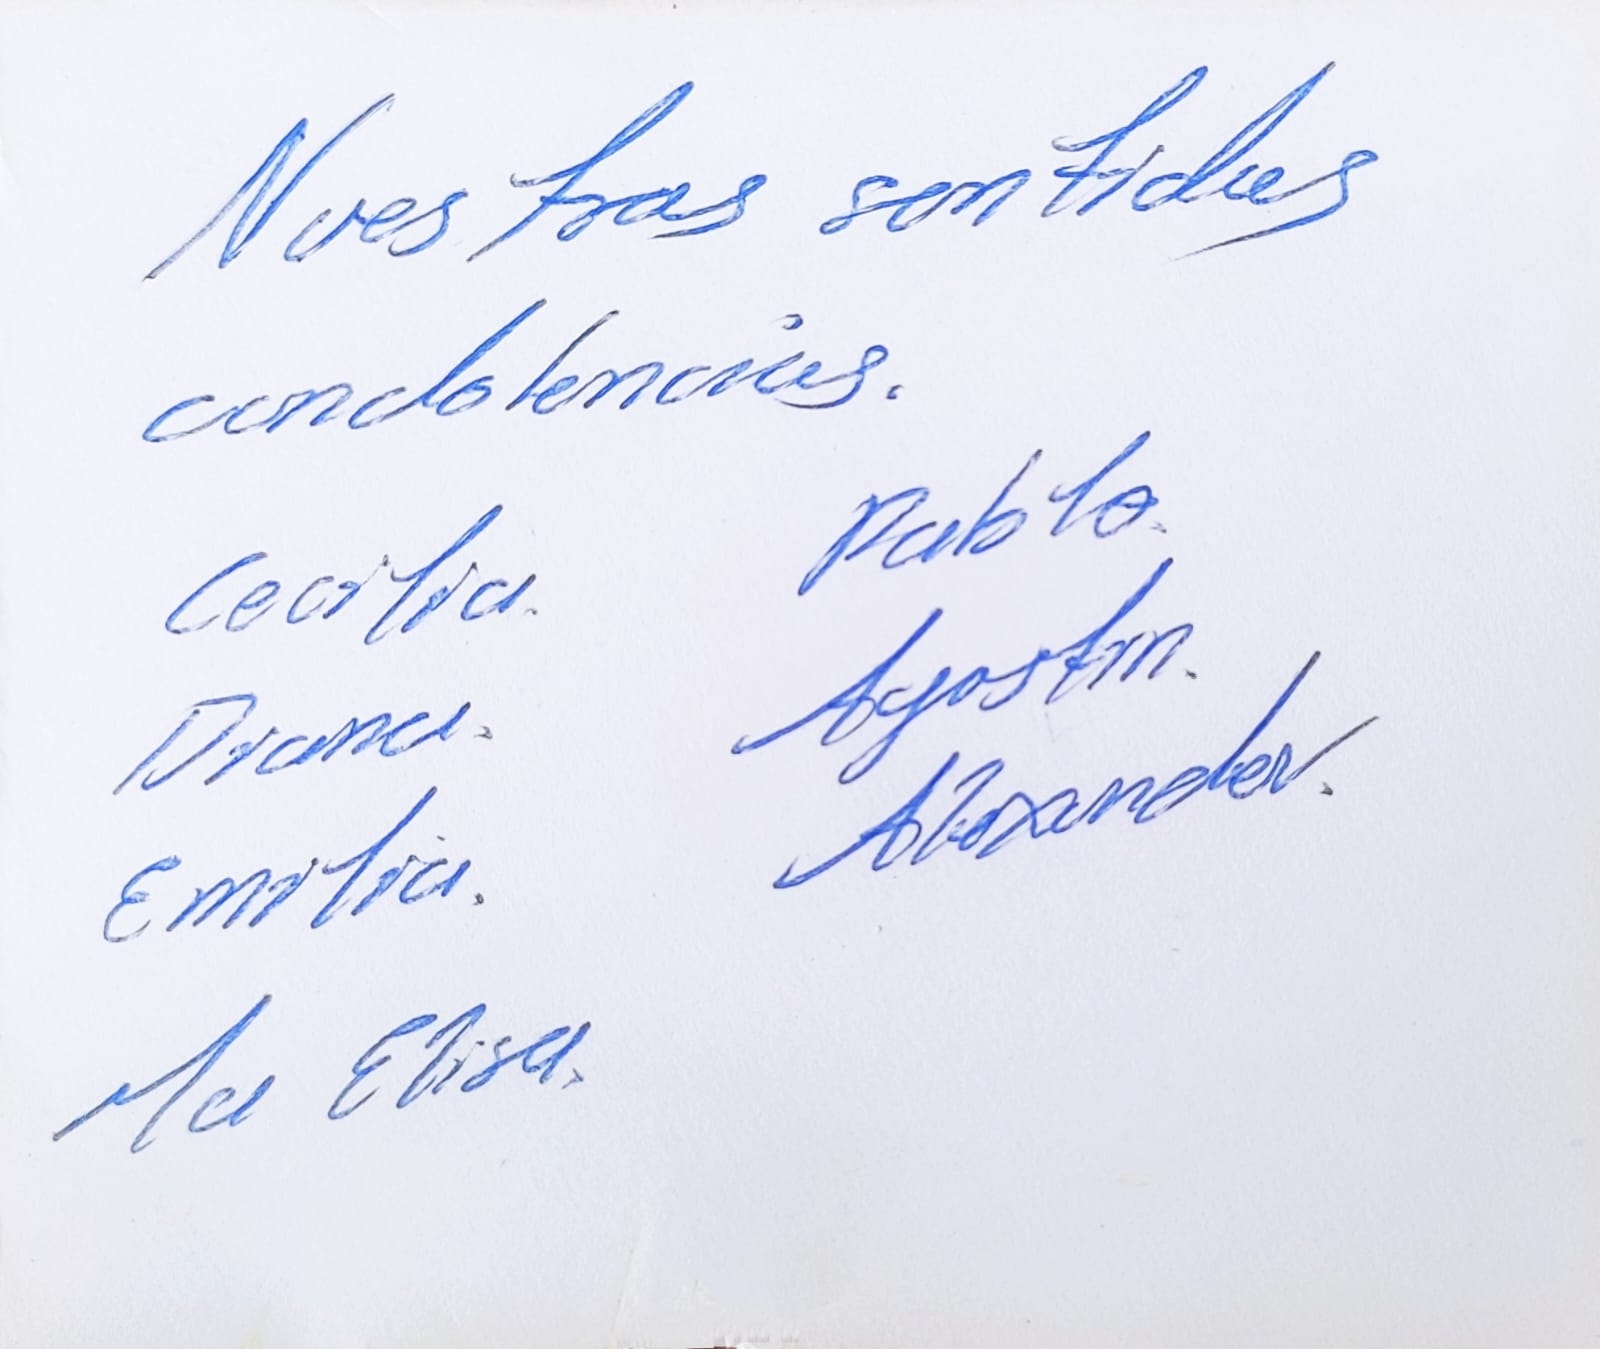 Nuestras sentidas
condolencias.
Cecilia.
Diana.
Emilia.
Ma Elisa.
Pablo.
Agostin.
Alexander.